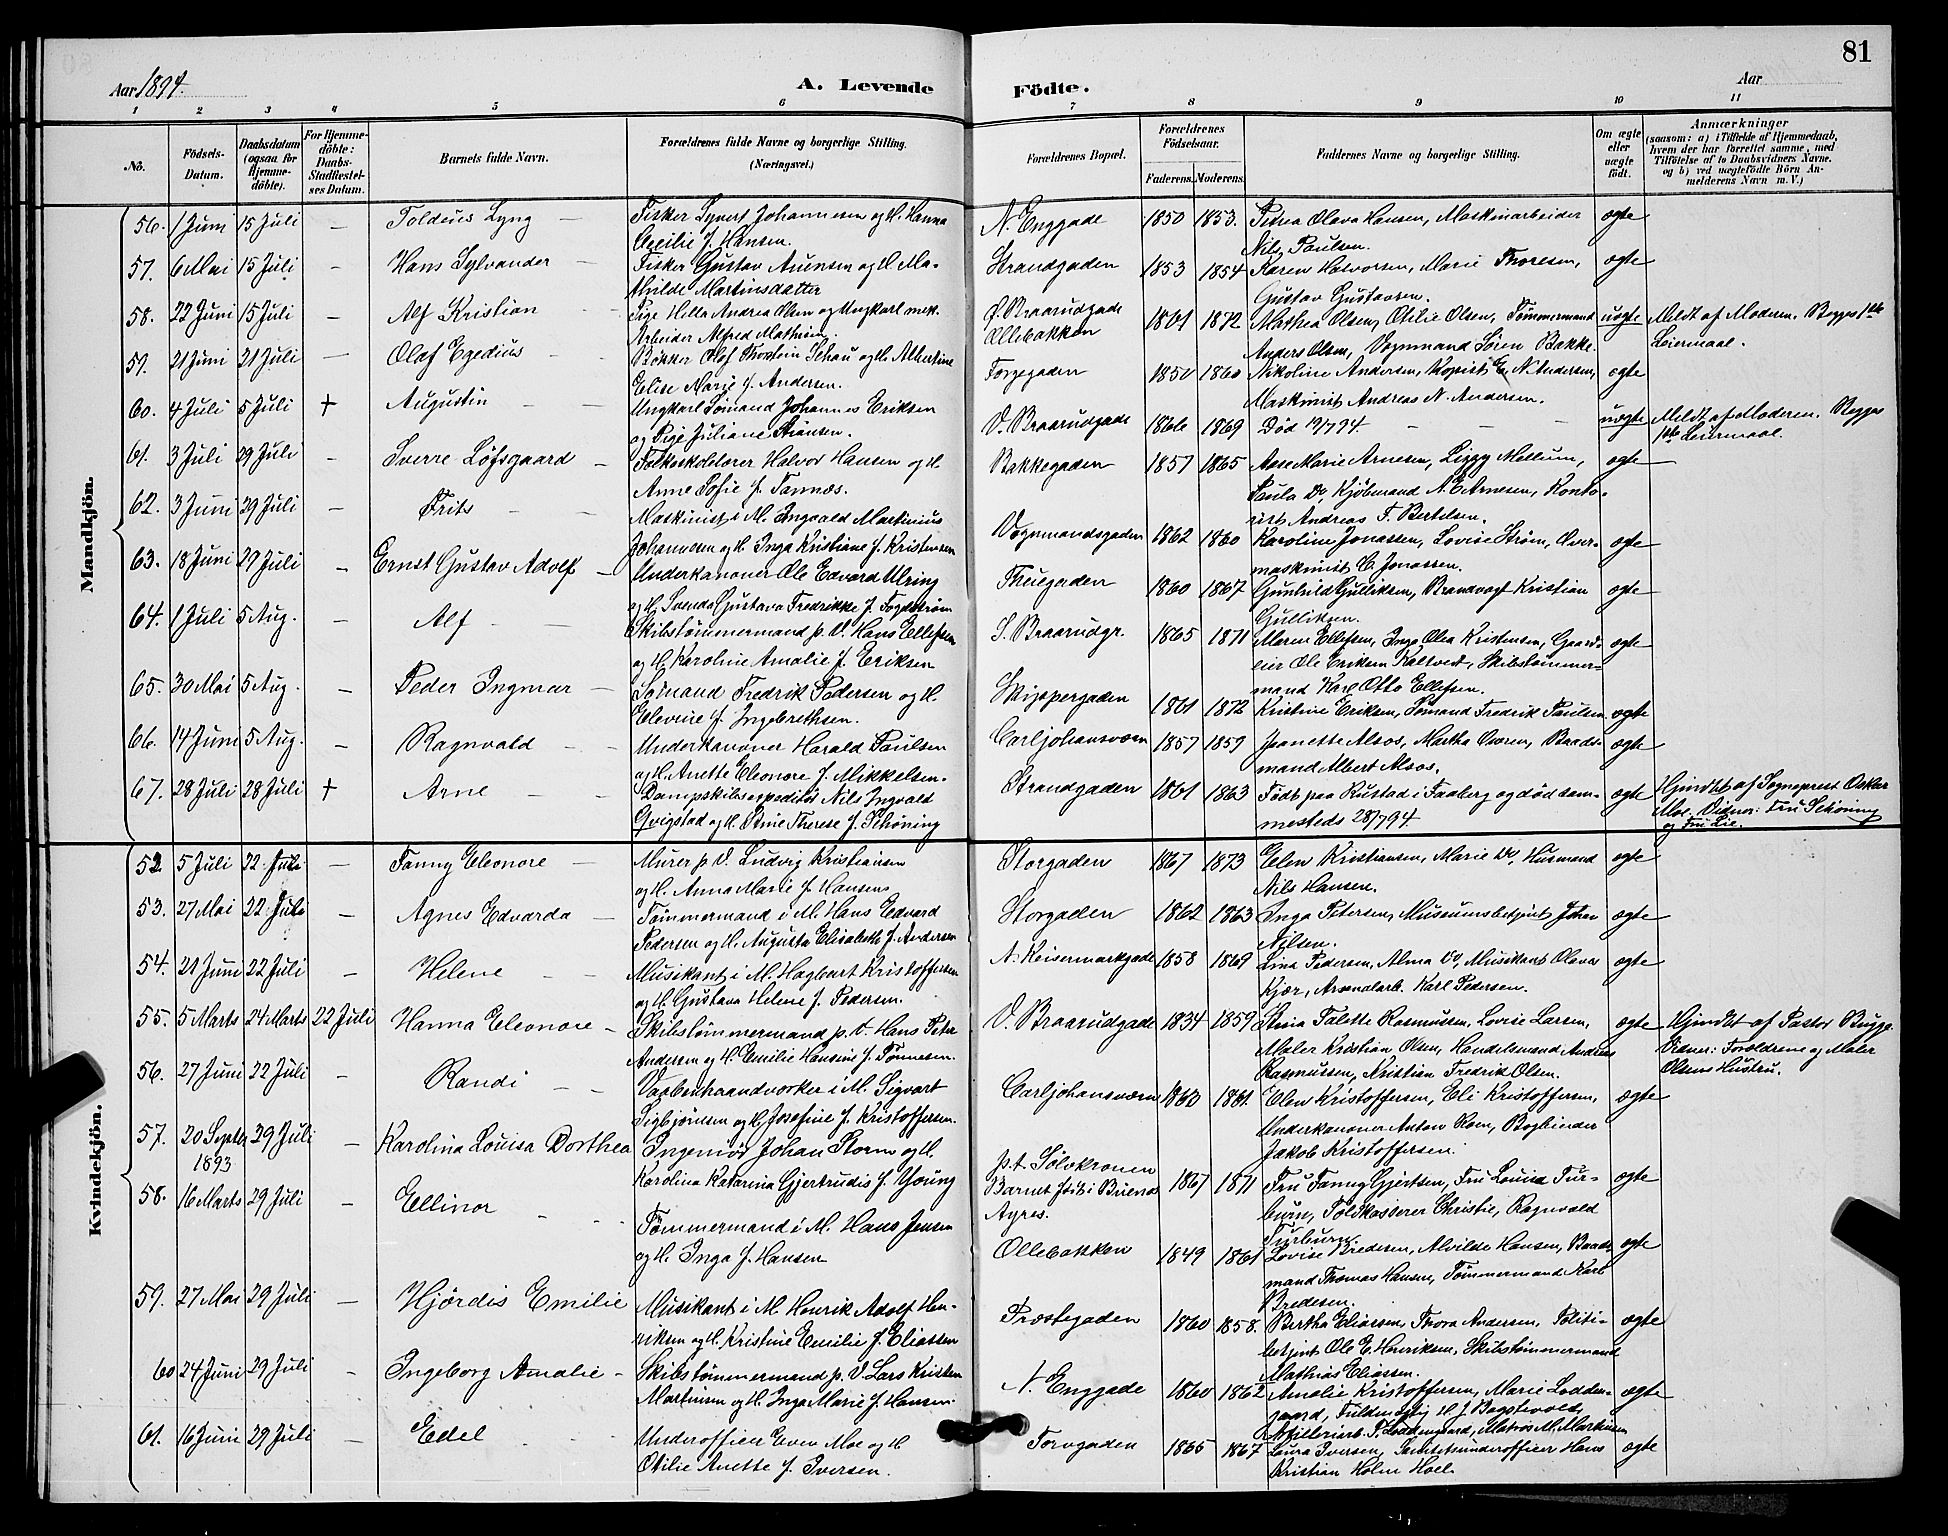 81
Aar 1894.
A. Levende
Födte.
Aar
1 2 3 4 5 6 7 8 9 10 11
No.
Födsels-Datum.
Daabsdatum (ogsaa for Hjemme-döbte).
For Hjemme-döbte: Daabs-Stadfæstel-ses Datum.
Barnets fulde Navn.
Forældrenes fulde Navne og borgerlige Stilling. (Næringsvei.)
Forældrenes Bopæl.
Forældrenes Födselsaar.
Faderens. Moderens.
Faddernes Navne og borgerlige Stilling.
Om ægte eller uægte födt.
Anmærkninger
(saasom: a) i Tilfælde af Hjemmedaab,
hvem der har forrettet samme, med
Tilföielse af to Daabsvidners Navne,
og b) ved uægtefödte Börn An-
melderens Navn m. V.)
Mandkjön.
56. 1 Juni 15 Juli — Toldeus Lyng — Fisker Syvert Johannesen og H. Hanna
Cecilie f. Hansen. N. Enggade 1850 1853. Petrea Olava Hansen, Maskinarbeider
Nils Paulsen. ægte
57. 6 Mai 15 Juli — Hans Sylvander — Fisker Gustav Arensen og H. Ma-
thilde Martinsdatter Strandgaden 1853 1854 Karen Halvorsen, Marie Thoresen,
Gustav Gustavsen. ægte
58. 22 Juni 15 Juli — Alf Kristian — Pige Helle Andrea Olsen og Ungkarl mek.
Arbeider Alfred Mathisen. Ø. Braarudgade
Ollebakken 1861 1872 Mathea Olsen, Otilie Olsen, Tømmermand
Anders Olsen, Vognmand Søren Bakke. uægte Meldt af Moderen. Begges 1ste
Leiermaal.
59. 21 Juni 21 Juli — Olaf Egedius — Bøkker Olaf Thorstein Schau og H. Albertine
Elise Marie f. Andersen. Torvegaden 1850 1860 Nikoline Andersen, Kopist E. N. Andersen,
Maskinist Andreas N. Andersen. ægte
60. 4 Juli 5 Juli + Augustin — Ungkarl Sømand Johannes Eriksen
og Pige Juliane Hansen. V. Braarudgade 1866 1869 Død 19/7 94. — uægte Meldt af Moderen. Begges
1ste Leiermaal.
61. 3 Juli 29 Juli — Sverre Løfsgaard — Folkeskolelærer Halvor Hansen og H.
Anne Sofie f. Tannæs. Bakkegaden 1857 1865 Aase Marie Arnesen, Lizzy Mellum,
Paula Do, Kjøbmand N. E. Arnesen, Konto-
rist Andreas F. Bertelsen. ægte
62. 3 Juni 29 Juli — Frits — Maskinist i M. Ingvald Martinius
Johannesen og H. Inga Kristiane f. Kristensen Vognmandsgaden 1862 1860 Karoline Jonassen, Lovise Strøm, Over-
maskinist C. Jonassen. ægte
63. 18 Juni 29 Juli — Ernst Gustav Adolf — Underkanoner Ole Edvard Ulring
og H. Svenda Gustava Fredrikke f. Fogdstrøm Thuegaden 1860 1867 Gunhild Gulliksen, Brandvagt Kristian
Gulliksen. ægte
64. 1 Juli 5 Aug. — Alf — Skibstømmermand p. V. Hans Ellefsen
og H. Karoline Amalie f. Eriksen S. Braarudgr. 1865 1871 Maren Ellefsen, Inga Olea Kristensen, Gaard-
eier Ole Eriksen Kaltvedt, Skibstømmer-
mand Karl Otto Ellefsen. ægte
65. 30 Mai 5 Aug. — Peder Ingmar — Sømand Fredrik Pedersen og H.
Elevine f. Ingebrethsen. Skippergaden 1861 1872 Kristine Eriksen, Sømand Fredrik Paulsen. ægte
66. 14 Juni 5 Aug. — Ragnvald — Underkanoner Harald Paulsen
og H. Anette Eleonore f. Mikkelsen. Carljohansværn 1857 1859 Jeanette Alsos, Martha Oseren, Baads-
mand Albert Alsos. ægte
67. 28 Juli 28 Juli + Arne — Dampskibsexpeditør Nils Ingvald
Qvigstad og H. Stine Therese f. Schöning Strandgaden 1861 1863 Født paa Rustad i Faaberg og død sam-
mesteds 28/7 94. ægte Hjmdbt af Sogneprest Oskar
Moe. Vidner: Fru Schöning
og Fru Lie.
Kvindekjön.
52. 5 Juli 22 Juli — Fanny Eleonore — Murer p. V. Ludvig Kristiansen
og H. Anna Marie f. Hansen Storgaden 1867 1873 Elen Kristiansen, Marie Do, Husmand
Nils Hansen. ægte
53. 27 Mai 22 Juli — Agnes Edvarda — Tømmermand i M. Hans Edvard
Pedersen og H. Augusta Elisabeth f. Andersen Storgaden 1862 1863 Inga Petersen, Museumsbetjent Johan
Nilsen. ægte
54. 21 Juni 22 Juli — Helene — Musikant i M. Hagbart Kristoffersen
og H. Gustava Helene f. Pedersen. N. Keisermarkgade 1858 1869 Lina Pedersen, Alma Do, Musikant Olaves
Kjær, Arsenalarb. Karl Pedersen. ægte
55. 5 Marts 24 Marts 22 Juli Hanna Eleonore — Skibstømmermand p. V. Hans Peter
Andersen og H. Emilie Hansine f. Tønnesen. V. Braarudgade 1834 1859 Stina Talette Rasmussen, Lovise Larsen,
Maler Kristian Olsen, Handelsmand Andreas
Rasmussen, Kristian Fredrik Olsen. ægte Hjmdbt af Pastor Bugge.
Vidner: Forældrene og Maler
Olsens Hustru.
56. 27 Juni 22 Juli — Randi — Vaabenhaandværker i M. Sigvart
Sigbjørnsen og H. Josefine f. Kristoffersen. Carljohansværn 1863 1861. Elen Kristoffersen, Eli Kristoffersen,
Underkanoner Anton Roen, Bogbinder
Jakob Kristoffersen. ægte
57. 20 Septbr 1893 29 Juli — Karolina Louisa Dorthea Ingeniør Johan Storm og H.
Karolina Katarina Gjertrudis f. Young p.t. Sølvkronen
Barnet født i Buenos
Ayres. 1867 1871 Fru Fanny Gjertsen, Fru Louisa Tur-
burn, Toldkasserer Christie, Ragnvald
Turburn. ægte
58. 16 Marts 29 Juli — Ellinor — Tømmermand i M. Hans Jensen
og H. Inga f. Hansen Ollebakken 1849 1861 Lovise Bredesen, Alvilde Hansen, Baads-
mand Thomas Hansen, Tømmermand Karl
Bredesen. ægte
59. 27 Mai 29 Juli — Hjørdis Emilie Musikant i M. Henrik Adolf Hen-
riksen og H. Kristine Emilie f. Eliassen Præstegaden 1860 1858. Bertha Eliassen, Thora Andersen, Politi-
betjent Ole E. Henriksen, Skibstømmermand
Mathias Eliassen. ægte
60 24 Juni 29 Juli — Ingeborg Amalie — Skibstømmermand p. V. Lars Kristen
Martinsen og H. Inga Marie f. Hansen. N. Enggade 1860 1862 Amalie Kristoffersen, Marie Lodden-
gaard, Fuldmægtig H. J. Bagstevold,
Artilleriarb. P. Loddengaard, Matros M. Martinsen ægte
61. 16 Juni 29 Juli — Edel Underofficer Even Moe og H.
Otilie Anette f. Iversen. Torvgaden 1865 1867 Laura Iversen, Sanitetsunderofficer Hans
Kristian Holm Hoel. ægte